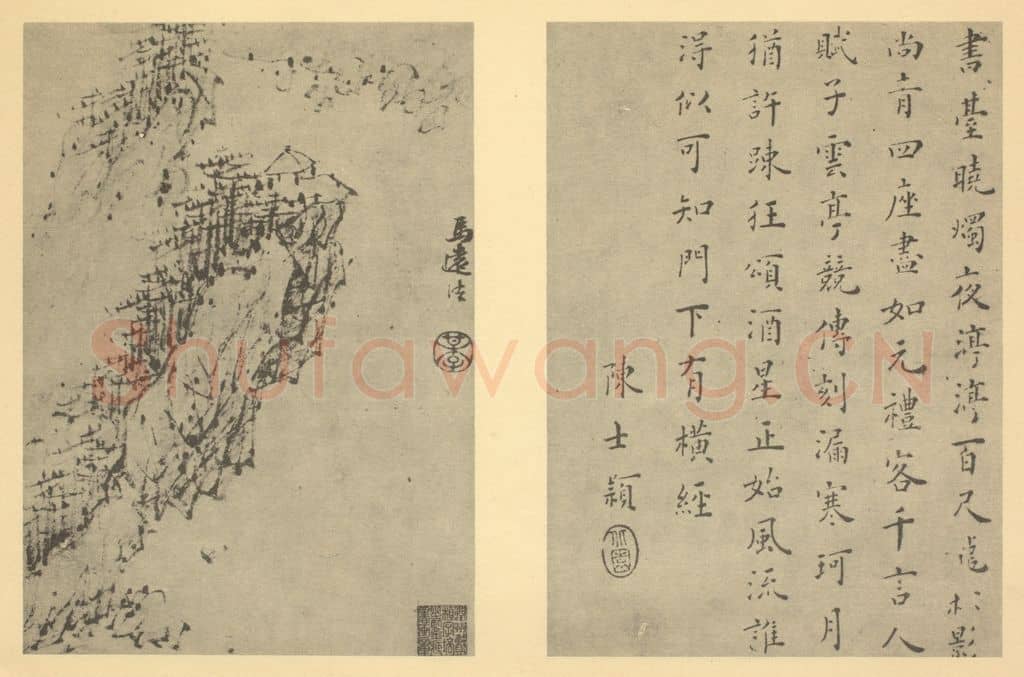 書臺曉燭夜渟渟百尺影
尚青四座盡如元禮客千言人
賦子雲亭競傳刻漏寒珂月
猶許踈狂頌酒星正始風流誰
淂似可知門下有橫經
陳士穎
馬遠法
Shufawang.CN